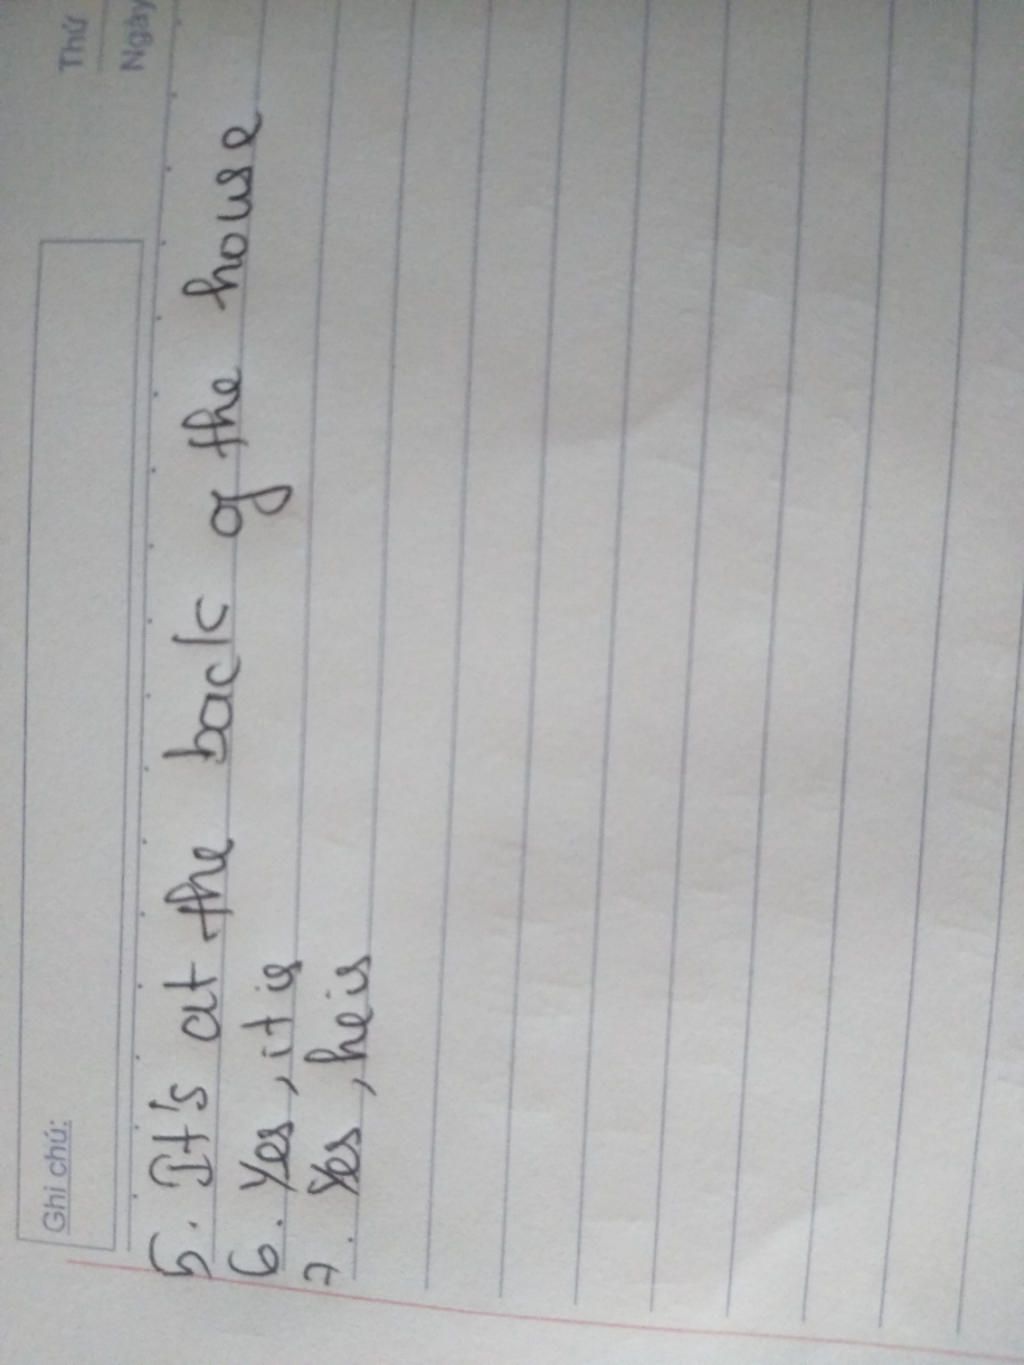 Ghi chú:
Thứ
Ngày
5. It's at the back of the house
6. Yes, it is
7. Yes, he is